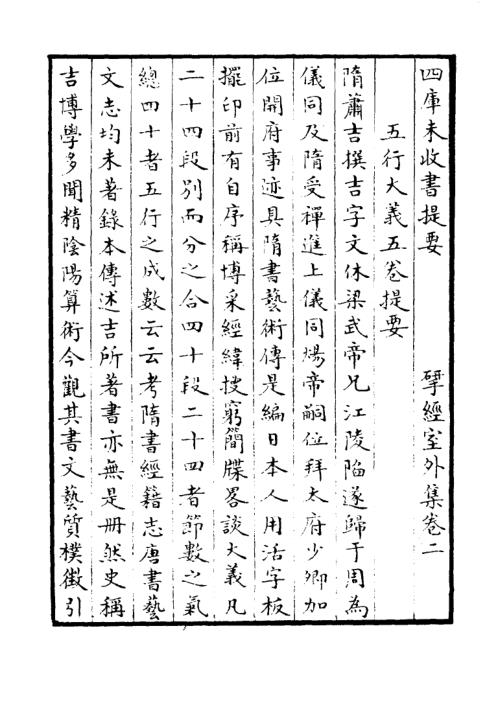 四庫未收書提要 揅經室外集卷二
五行大義五卷提要
隋蕭吉撰吉字文休梁武帝兄江陵陷遂歸于周為
儀同及隋受禪進上儀同煬帝嗣位拜太府少卿加
位開府事迹具隋書藝術傳是編日本人用活字板
擺印前有自序稱博采經緯搜窮簡牒畧談大義凡
二十四段別而分之合四十段二十四者節數之氣
總四十者五行之成數云云考隋書經籍志唐書藝
文志均未著錄本傳述吉所著書亦無是冊然史稱
吉博學多聞精陰陽算術今觀其書文藝質樸徵引